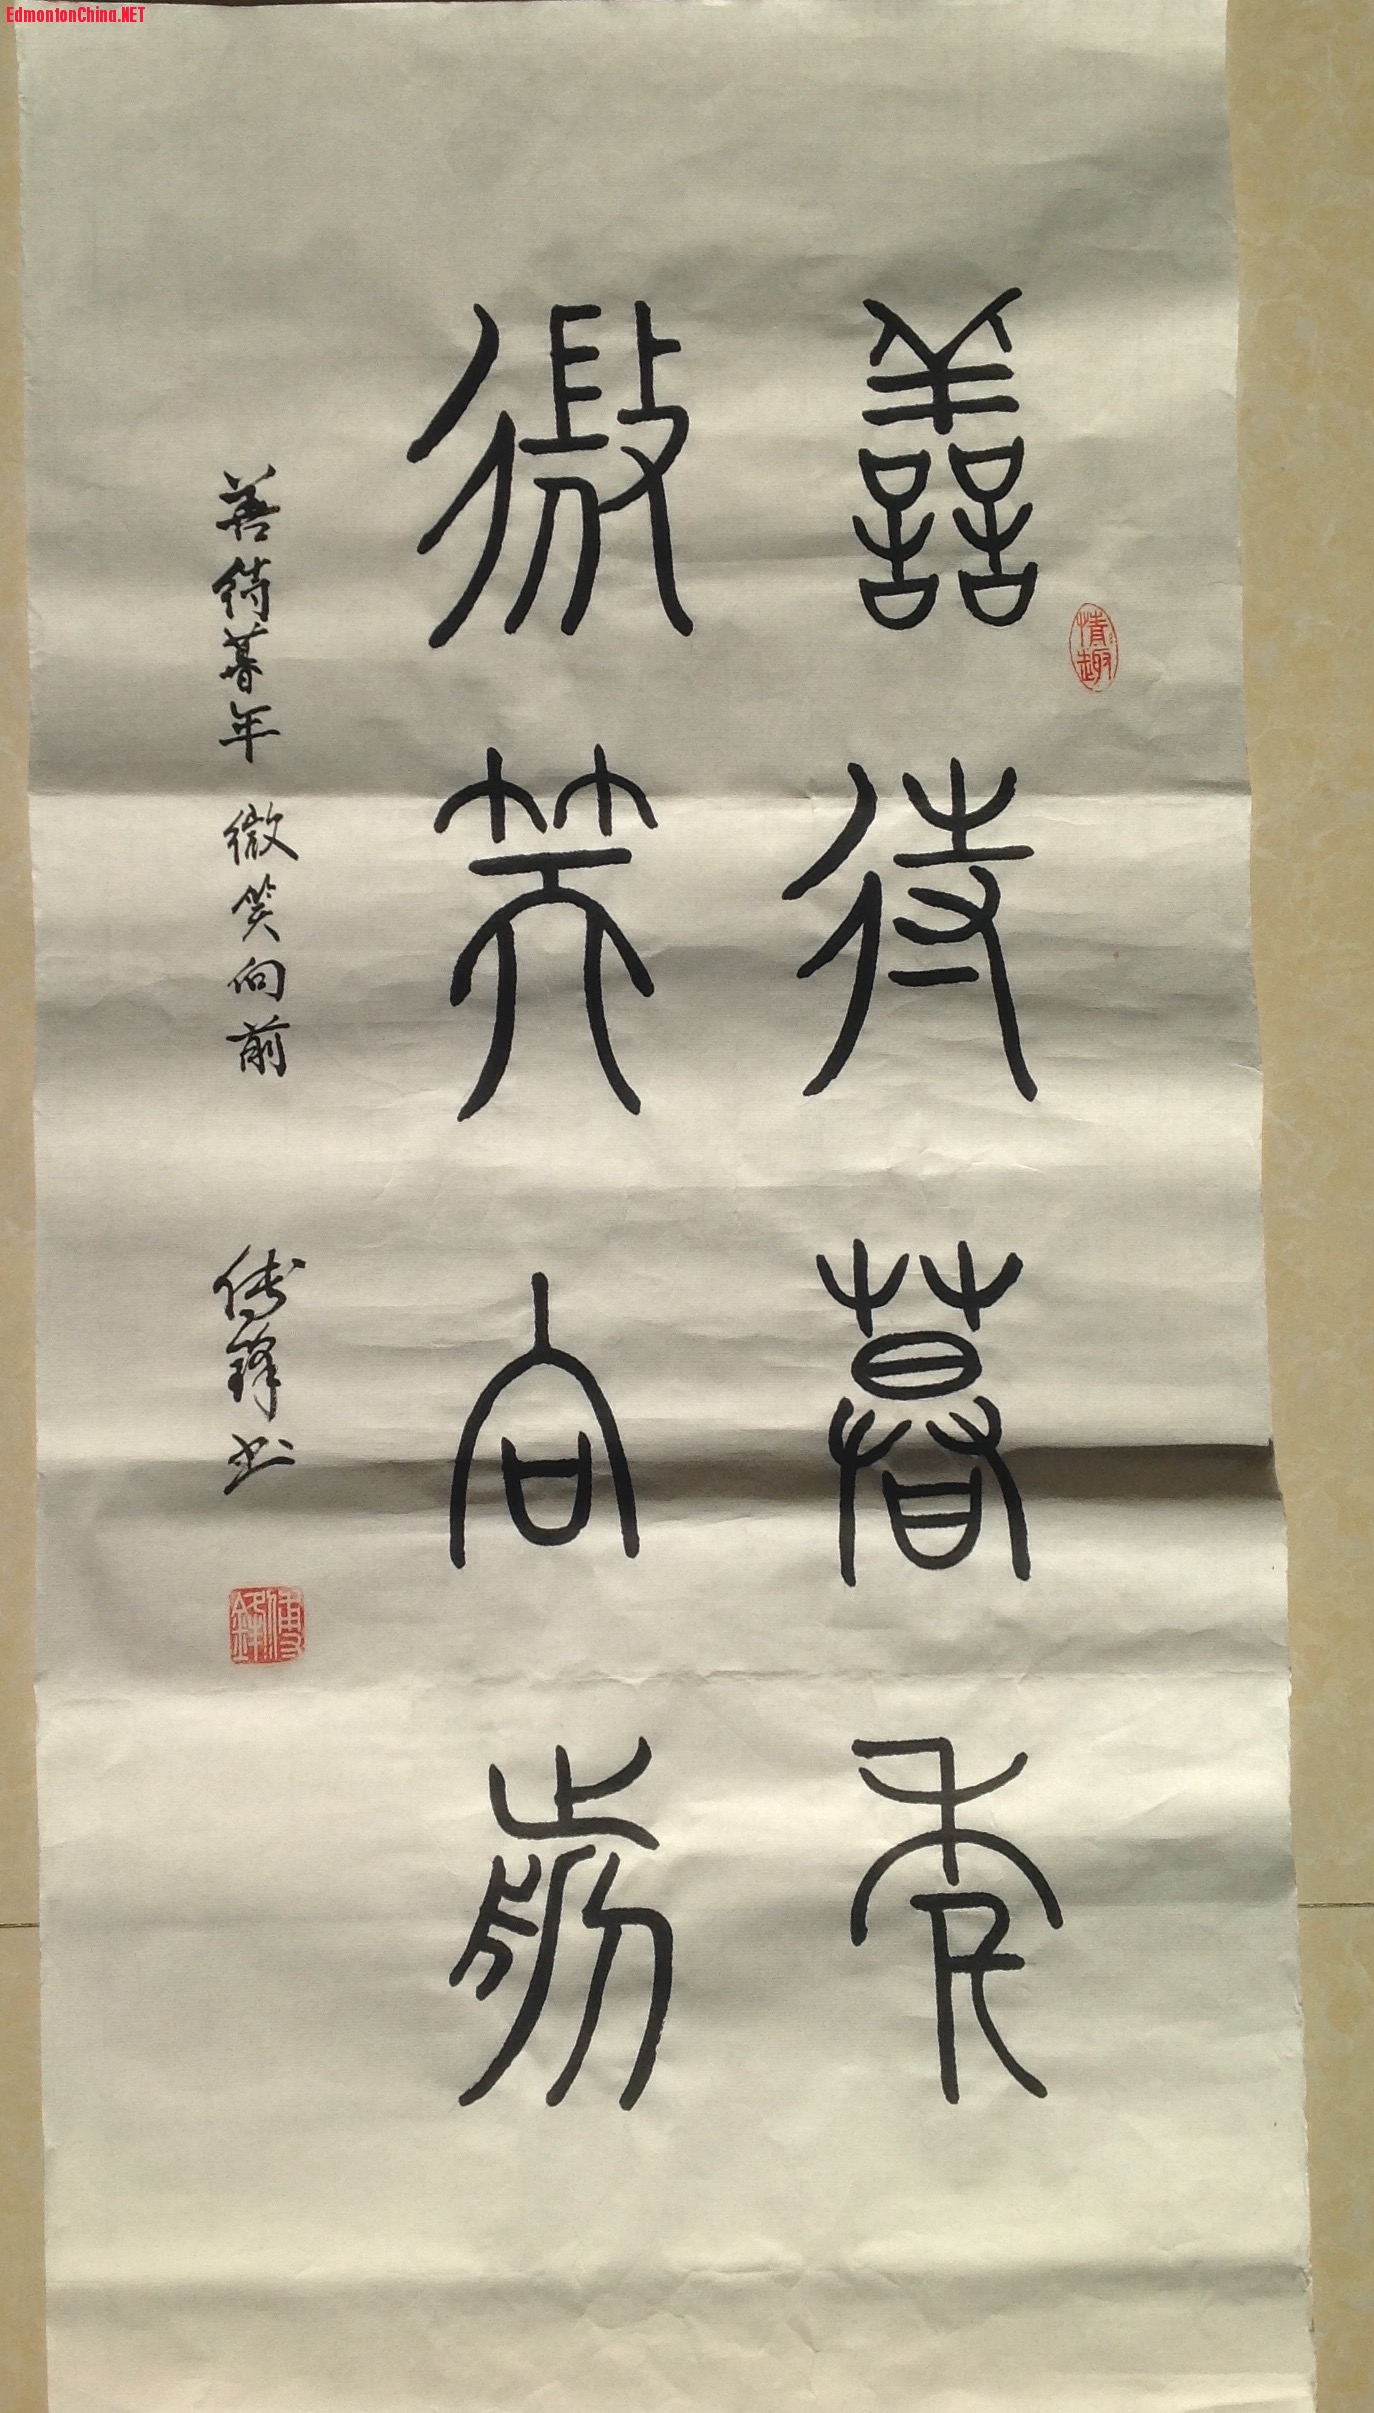 EdmontonChina.NET
善待暮年
微笑向前
情趣
善待暮年 微笑向前
傅鋒书
傅鋒